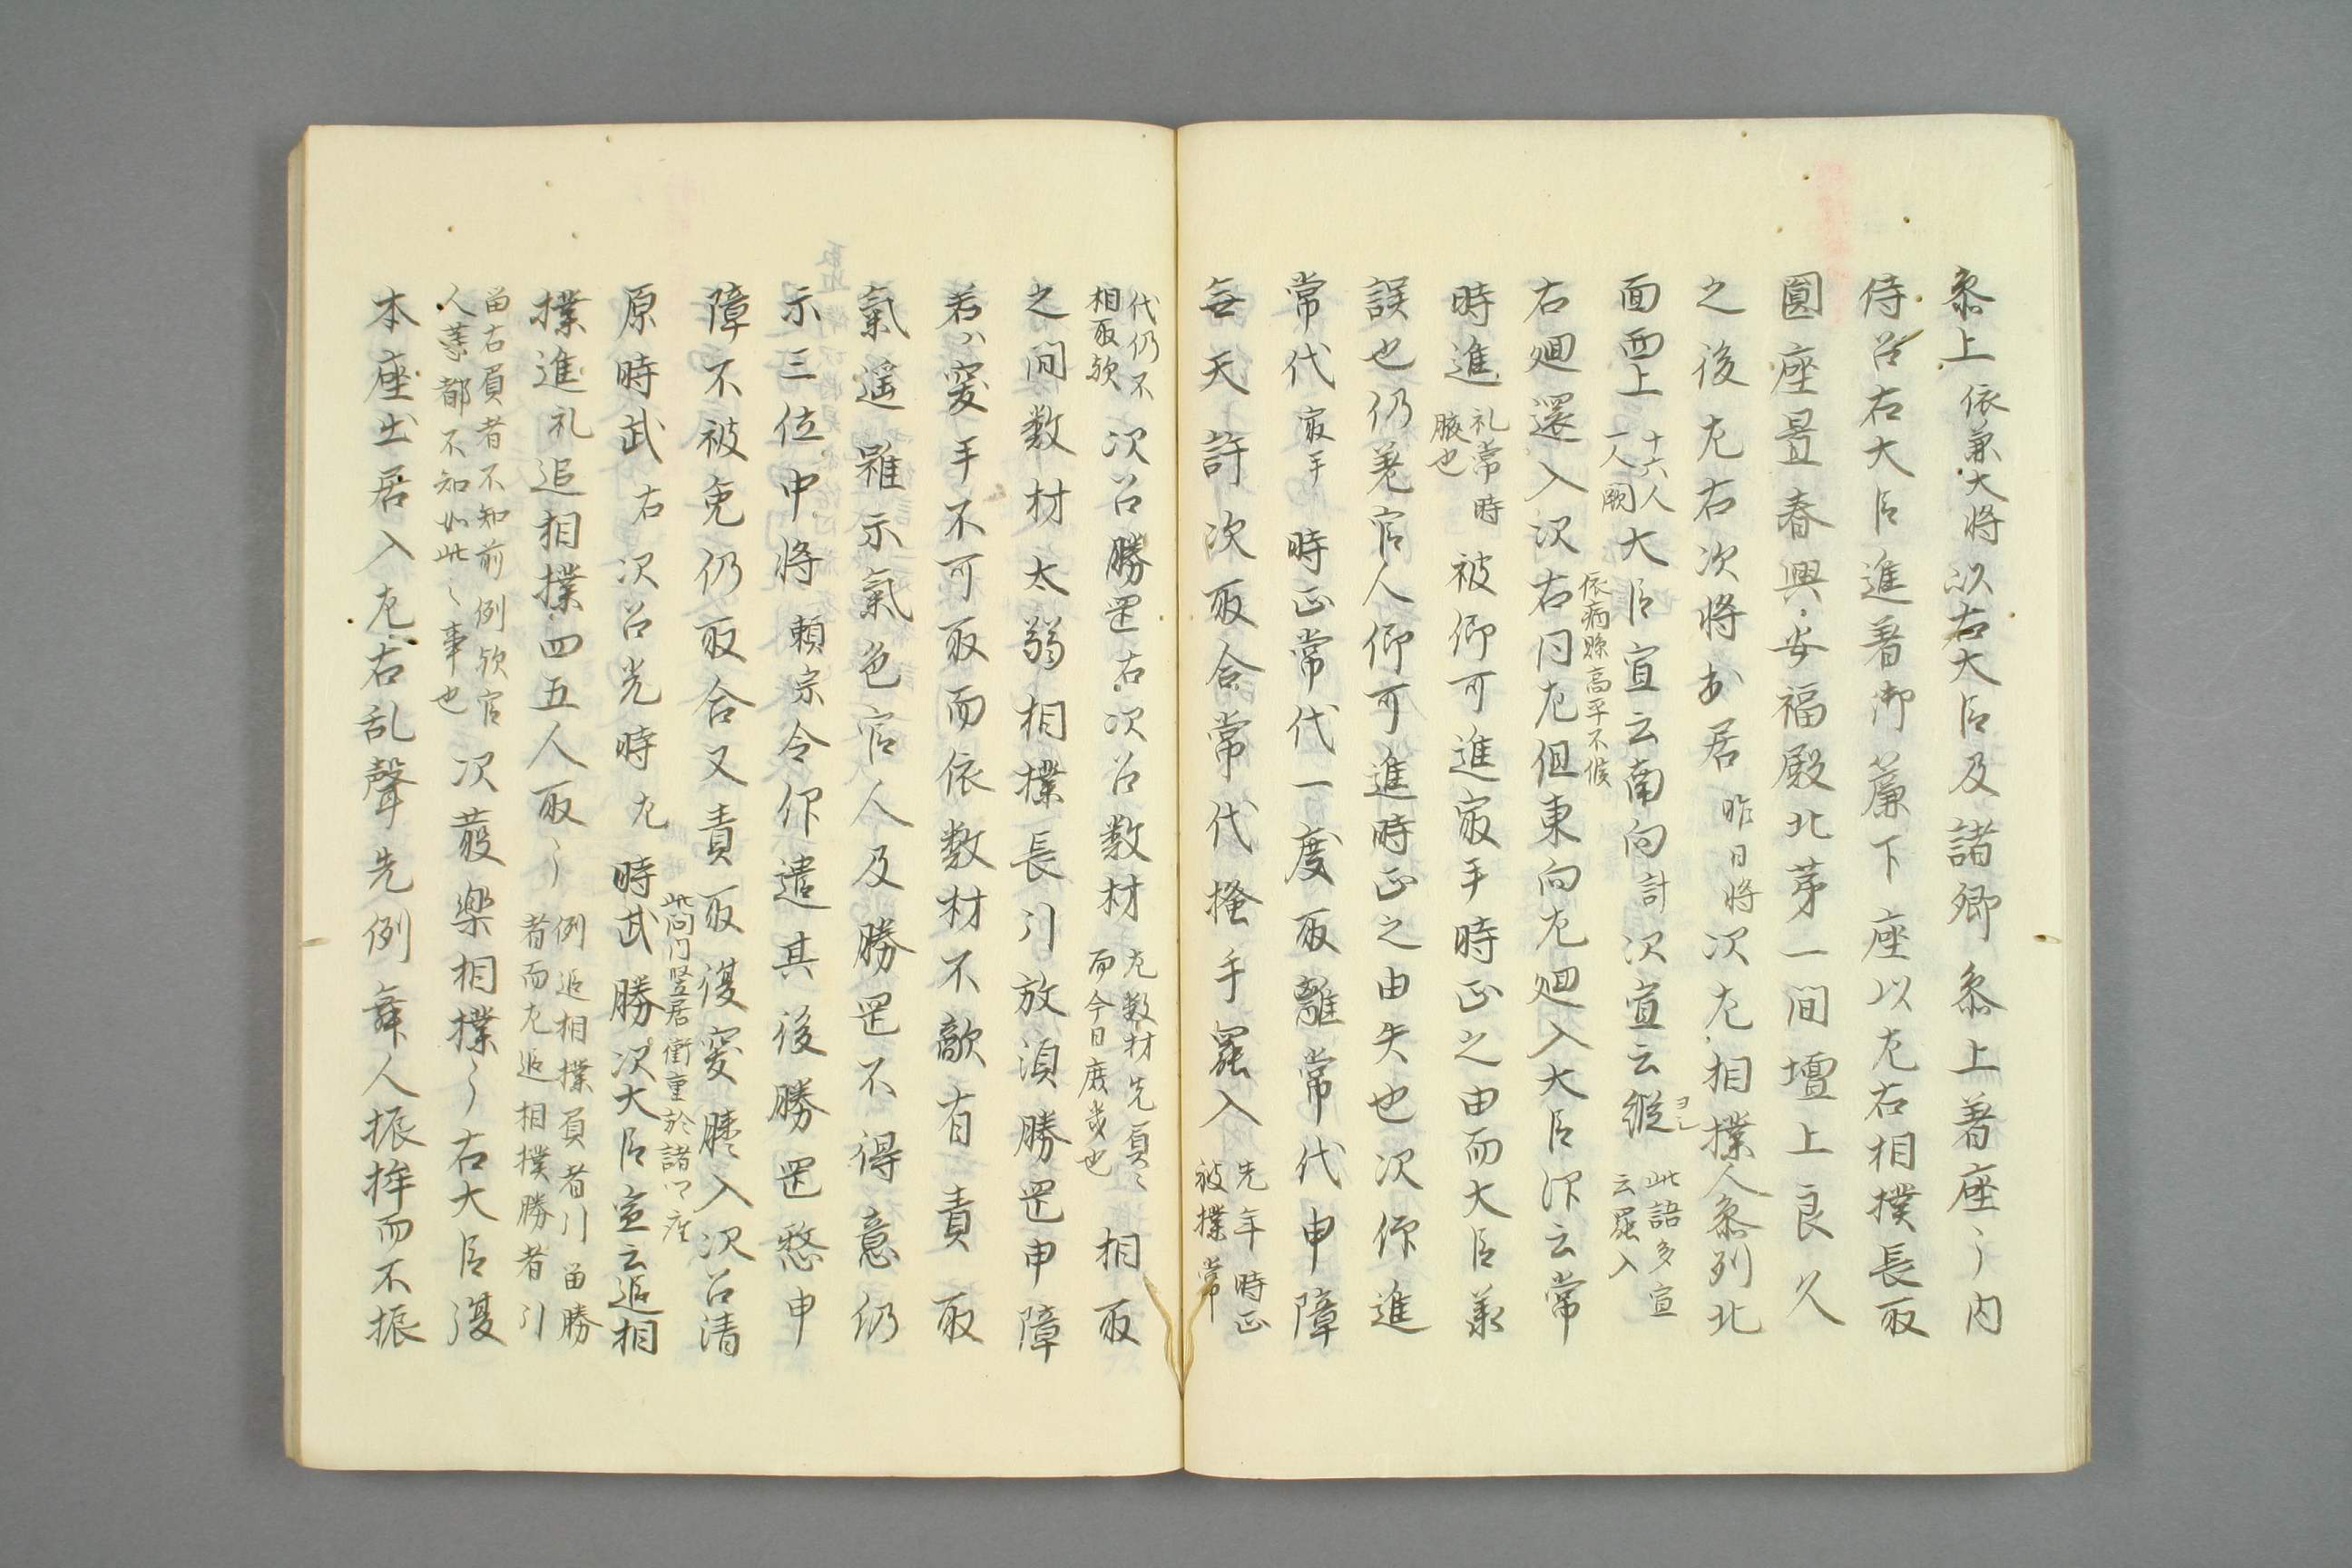 参上依兼大将以右大臣及諸卿参上着座〻内
侍召右大臣進着御簾下座以左右相撲長取
圓座置春興・安福殿北第一間壇上良久
之後左右次将出居昨日将次左相撲人参列北
面西上十六人一人闕大臣宣云南向計次宣云縦ヨシ此語多宣云罷入
右廻還入次右同左但東向左廻入大臣仰云常
依病縣高平不候
時進礼常時腋也被仰可進最手時正之由而大臣兼
誤也仍着官人仰可進時正之由失也次仰進
常代最手時正常代一度取離常代申障
無天許次取合常代掻手罷入先年時正被撲常
代仍不相取歟次召勝岡右次召数材左数材先負〻而今日度歩也相取
之間数材太弱相撲長引放須勝岡申障
若八変手不可取而依数材不敵有責取
氣遥雖示氣色官人及勝岡不得意仍
示三位中将頼宗令仰遣其後勝岡愁申
障不被免仍取合又責取復変腰入次召清
原時武右次召光時左時武勝次大臣宣云追相
此間門竪居衝重於諸卿座
撲進礼追相撲四五人取〻例追相撲負者引留勝者而左追相撲勝者引
留右負者不知前例歟官人等都不知如此〻事也次發樂相撲〻右大臣復
本座出居入左右乱聲先例舞人振桙而不振